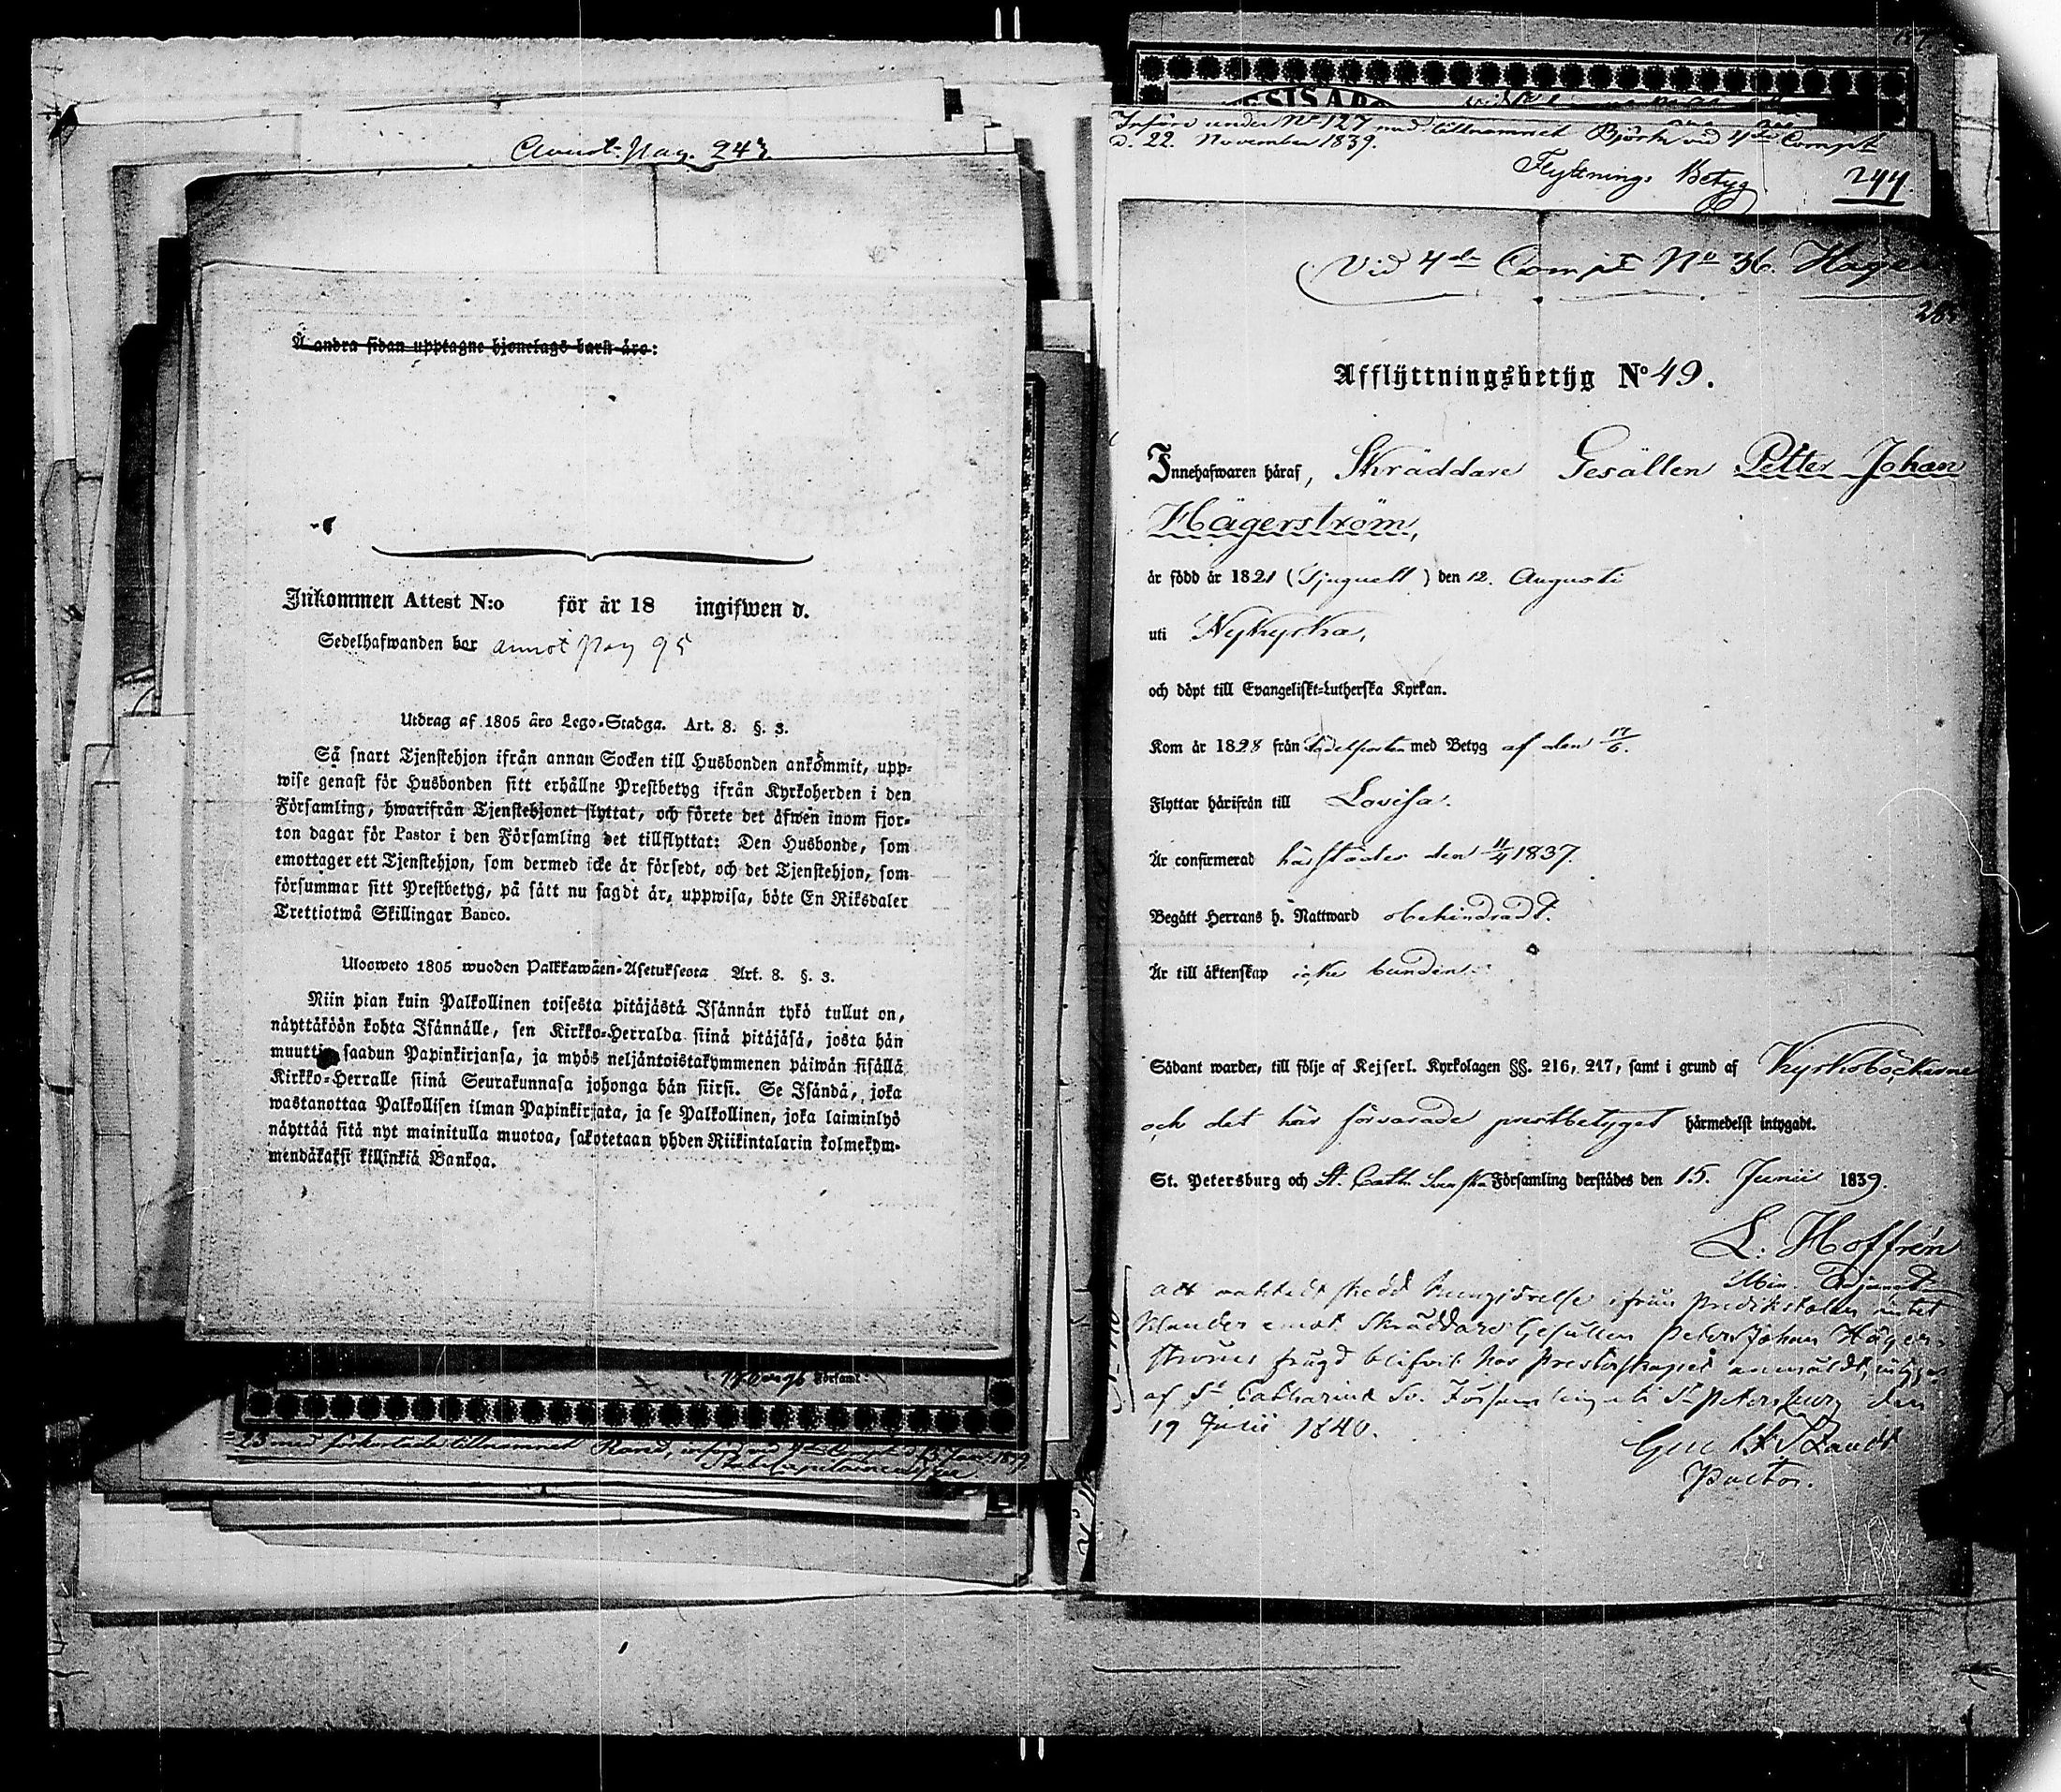 Annot. Pag. 243.
Å andra sidan upptagne hjonelags barn äro:
Inkommen Attest N:o för år 18 ingifwen d.
Sedelhafwanden bor annot Pag 95
Utdrag af 1805 års Lego-Stadga. Art. 8. §. 3.
Så snart Tjenstehjon ifrån annan Socken till Husbonden ankommit, upp-
wise genast för Husbonden sitt erhållne Prestbetyg ifrån Kyrkoherden i den
Församling, hwarifrån Tjenstehjonet flyttat, och förete det äfwen inom fjor-
ton dagar för Pastor i den Församling det tillflyttat: Den Husbonde, som
emottager ett Tjenstehjon, som dermed icke är försedt, och det Tjenstehjon, som
försummar sitt Prestbetyg, på sätt nu sagdt är, uppwisa, böte En Riksdaler
Trettiotwå Skillingar Banco.
Ulosweto 1805 wuoden Palkkawäen-Asetuksesta Art. 8. §. 3.
Niin pian kuin Palkollinen toisesta pitäjästä Isännän tykö tullut on,
näyttäköön kohta Isännälle, sen Kirkko-Herralda siinä pitäjäsä, josta hän
muutti, saadun Papinkirjansa, ja myös neljäntoistakymmenen päiwän sisällä
Kirkko-Herralle siinä Seurakunnasa johonga hän siirsi. Se Isändä, joka
wastanottaa Palkollisen ilman Papinkirjata, ja se Palkollinen, joka laiminlyö
näyttää sitä nyt mainitulla muotoa, sakotetaan yhden Riikintalarin kolmekym-
mendäkaksi killinkiä Bankoa.
Församl:
23 med förkortade tillnamnet Rand, införd vid
Införd under No 127 med tillnamnet Björk vid 4de Compt
d. 22. November 1839.
Flyttnings Betyg 244.
Vid 4de Compt No 36. Häger
Afflÿttningsbetÿg No 49.
Innehafwaren häraf, Skräddare Gesällen Petter Johan
Hägerström,
är född år 1821 (Tjuguett) den 12. Augusti
uti Nykyrka,
och döpt till Evangeliskt-Lutherska Kyrkan.
Kom år 1828 från med Betyg af den 17/6.
Flyttar härifrån till Lovisa.
Är confirmerad härstädes den 11/4 1837.
Begått Herrans h. Nattward obehindradt.
Är till äktenskap icke bunden.
Sådant warder, till följe af Kejserl. Kyrkolagen §§. 216, 217, samt i grund af Kyrkoböckerne
och det här förvarade prestbetyget härmedelst intygadt.
St. Petersburg och St. Cath. Svenska Församling derstädes den 15. Junii 1839.
L. Hoffrén
Min. Adjunct
Att verkstedt skedd kungjörelse ifrån predikstolen intet
klander emot Skräddare Gesällen Peter Johan Häger-
ströms frägd blifvit hos Presterskapet anmäldt, intygas
af St Catharinæ Sv. Församling i St Petersburg den
19 Junii 1840.
Pastor.